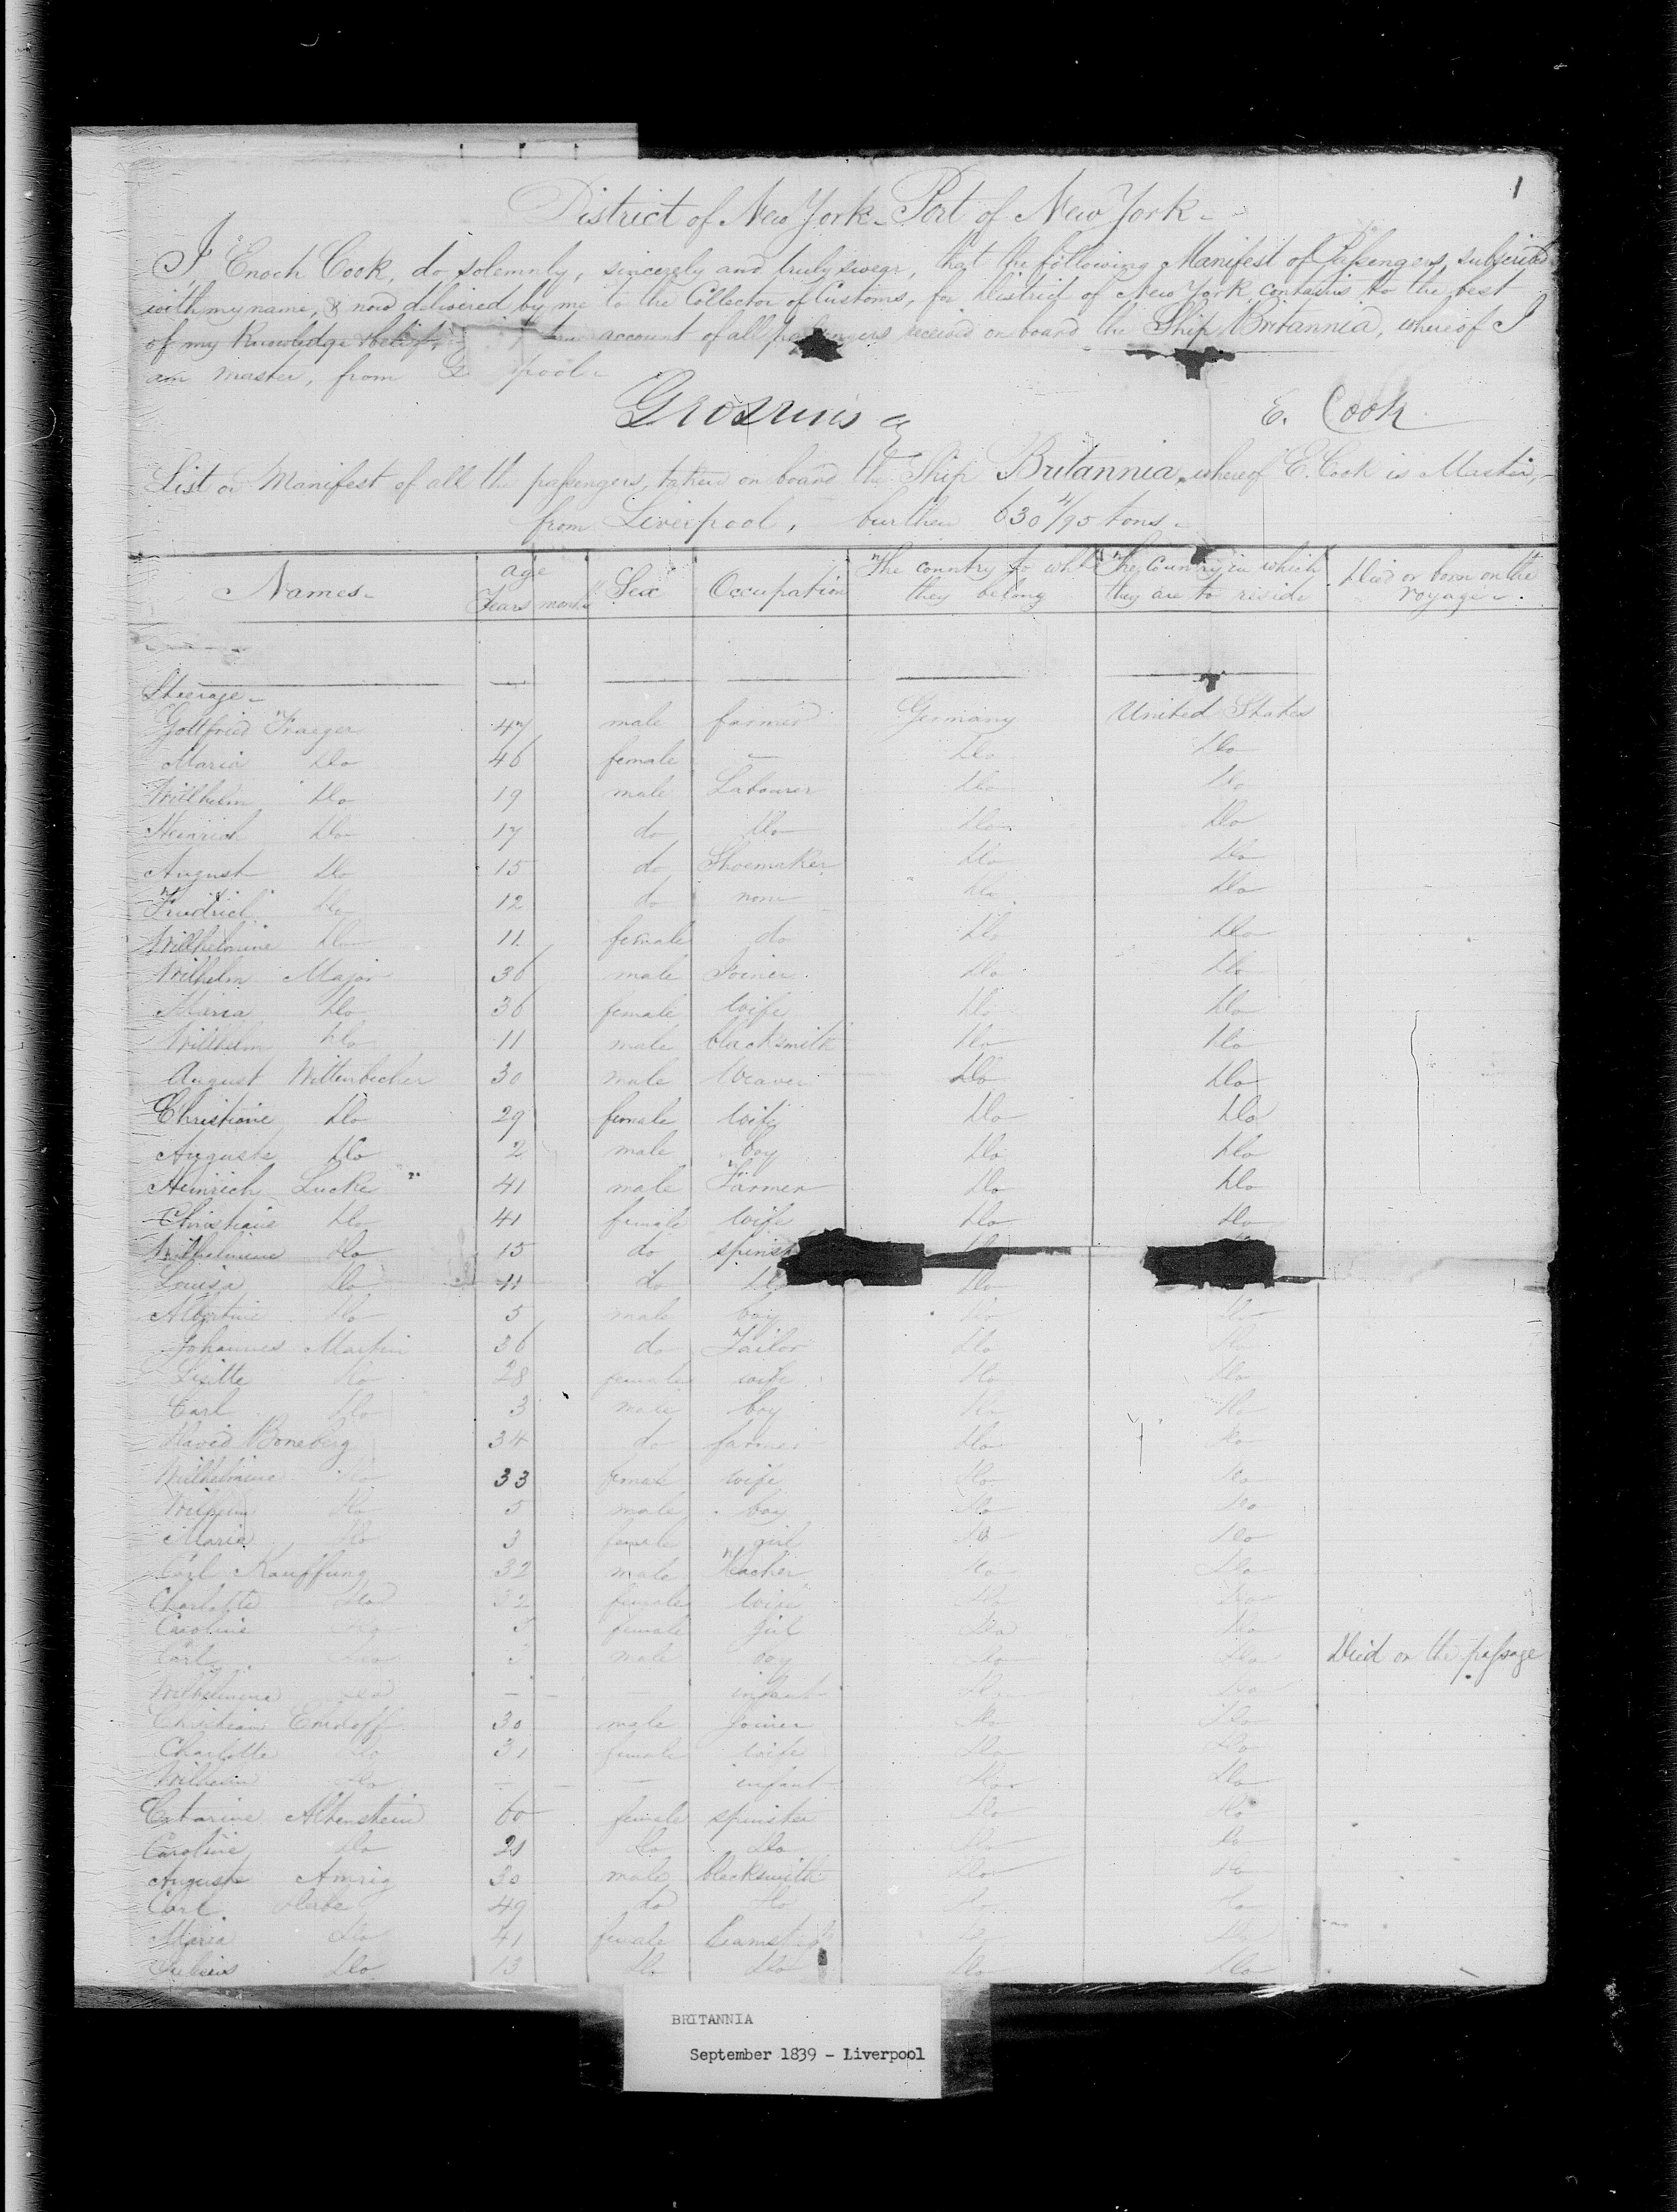 1
District of New York - Port of New York -
I, Enoch Cook, do, solemnly, sincerely and truly swear, that the following Manifest of Passengers, subscribed
with my name, & now delivered by me to the Collector of Customs, for District of New York, contains to the best
of my Knowledge & belief, account of all passengers received on board the Ship Britannia, whereof I
am master, from pool -
E. Cook
List or Manifest of all the passengers, taken on board the Ship Britannia, whereof E. Cook is Master, -
from Liverpool, burthen 630 4/95 tons -
Names - age Years months Sex Occupation The country to wh they belong The Country in which they are to reside Died or born on the voyage -
Steerage -
Gottfried Traeger 47 male farmer Germany United States
Maria Do 46 female - Do Do
Willhelm Do 19 male Labourer Do Do
Heinrich Do 17 do Do Do Do
August Do 15 do Shoemaker Do Do
Friedrich Do 12 do none Do Do
Willhelmine Do 11 female do Do Do
Wilhelm Major 36 male Joiner Do Do
Maria Do 36 female wife Do Do
Willhelm Do 11 male blacksmith Do Do
August Wittenbecher 30 male Weaver Do Do
Christiane Do 29 female wife Do Do
Auguste Do 2 male boy Do Do
Heinrich Lucke 41 male Farmer Do Do
Christiane Do 41 female wife Do Do
Wilhelmine Do 15 do spinst
Louisa Do 11 do Do Do
Albertine Do 5 male boy Do Do
Johannes Martin 36 do Tailor Do Do
Lisette Do 28 female wife Do Do
Carl Do 3 male boy Do Do
David Boneberg 34 do farmer Do Do
Wilhelmine Do 33 female wife Do Do
Wilhelm Do 5 male boy Do Do
Maria Do 3 female girl Do Do
Carl Kauffung 32 male Teacher Do Do
Charlotte Do 32 female wife Do Do
Caroline Do 5 female girl Do Do
Carl Do 3 male boy Do Do Died on the passage
Wilhelmine Do - - infant Do Do
Christian Emdoff 30 male Joiner Do Do
Charlotte Do 31 female wife Do Do
Wilhelm Do - - - infant Do Do
Catarine Altenstein 60 female spinster Do Do
Caroline Do 21 Do Do Do Do
Auguste Amrig 30 male blacksmith Do Do
Carl Derbe 49 do Do Do Do
Maria Do 41 female Do Do
Do 13 Do Do Do Do
BRITANNIA
September 1839 - Liverpool